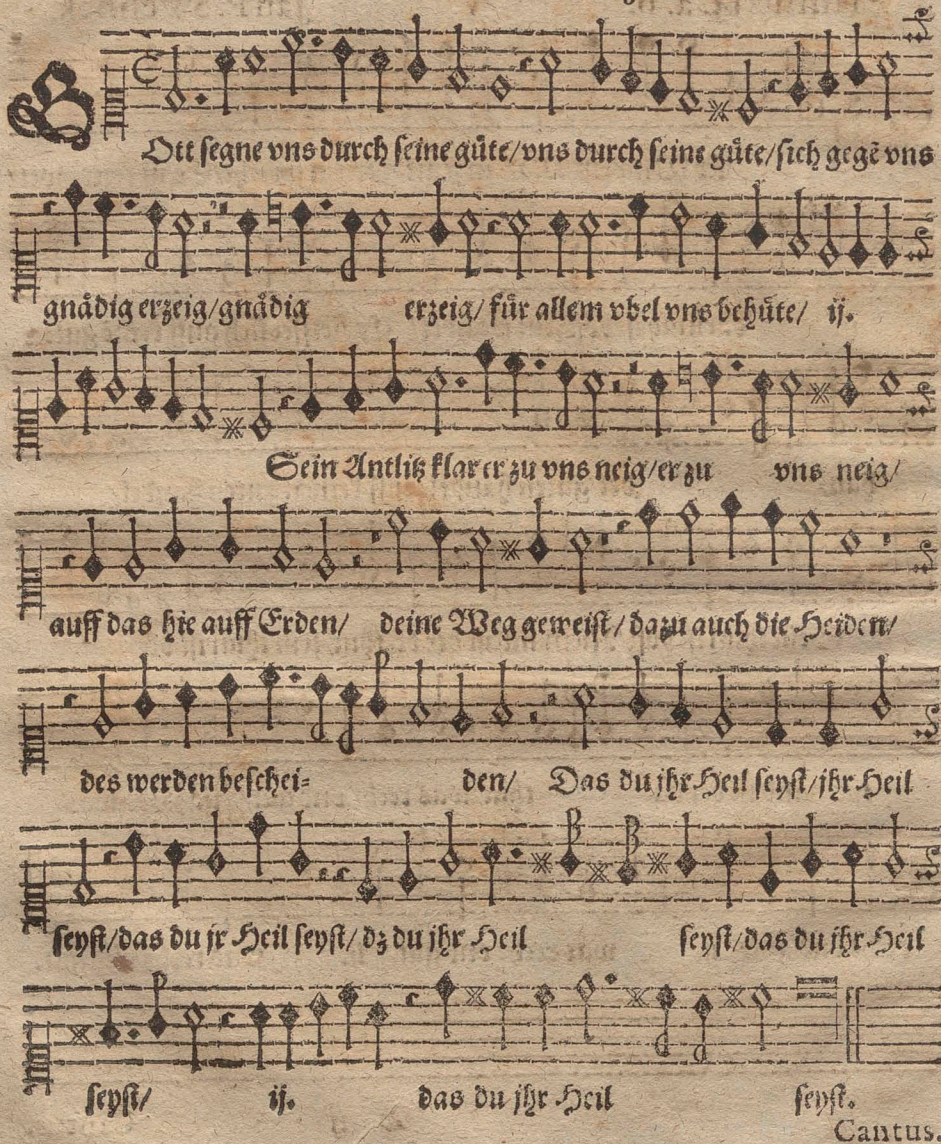 GOtt segne vns durch seine güte/vns durch seine güte/sich gegē vns
gnädig erzeig/gnädig erzeig/ für allem vbel vns behüte/ ij.
Sein Antlitz klar er zu vns neig/er zu vns neig/
auff das hie auff Erden/ deine Weg geweist/ dazu auch die Heiden/
des werden beschei= den/ Das du jhr Heil seyst/jhr Heil
seyst/das du jr Heil seyst/ dz du jhr Heil seyst/das du jhr Heil
seyst/ ij. das du jhr Heil seyst.
Cantus.